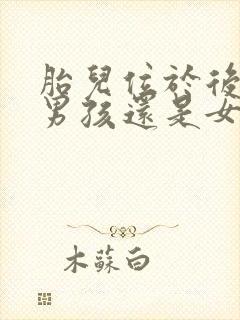 胎兒位於後
男孩還是女
木蘇白